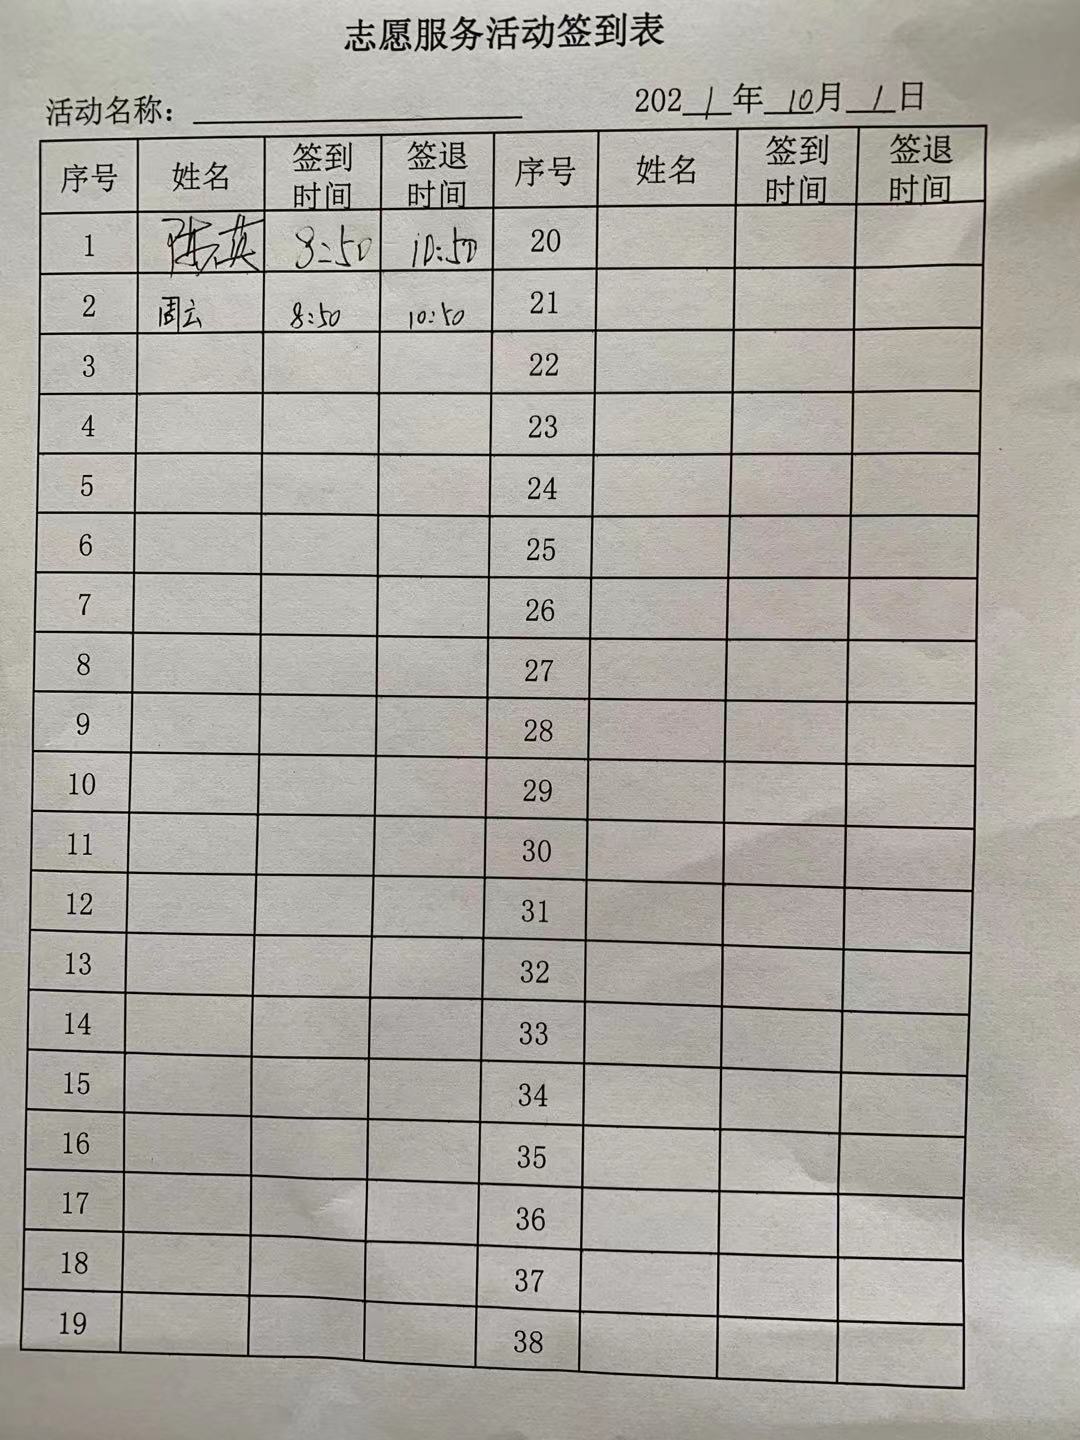 志愿服务活动签到表
活动名称： 2021年10月1日
序号 姓名 签到时间 签退时间 序号 姓名 签到时间 签退时间
1 陈英 8:50 10:50 20
2 周云 8:50 10:50 21
3 22
4 23
5 24
6 25
7 26
8 27
9 28
10 29
11 30
12 31
13 32
14 33
15 34
16 35
17 36
18 37
19 38